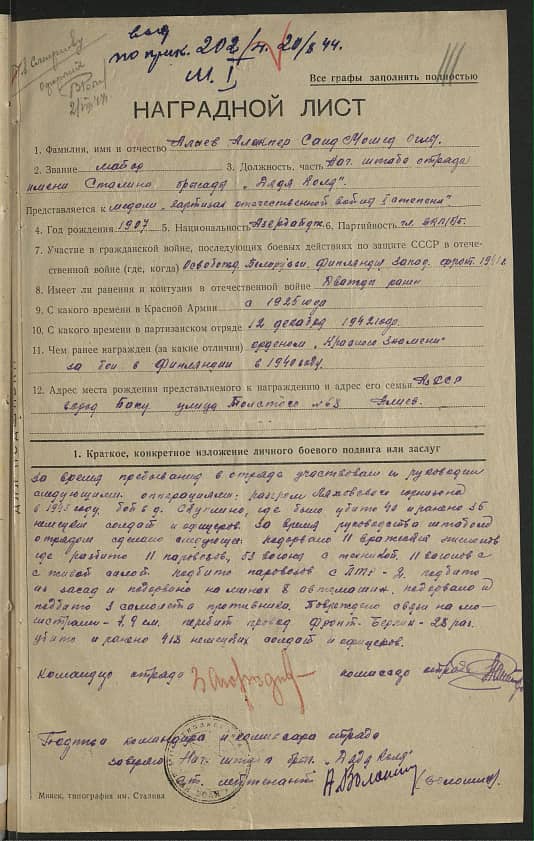 по прик. 202/н 20/8 44.
М. I
Все графы заполнять полностью
НАГРАДНОЙ ЛИСТ
1. Фамилия, имя и отчество Алиев Алекпер Саид Момед
2. Звание майор 3. Должность, часть Нач. штаба отряда
имени Сталина бригада „Дядя Коля".
Представляется к медали „партизан отечественной войны I степени"
4. Год рождения 1907 5. Национальность 6. Партийность чл. ВКП/б/.
7. Участие в гражданской войне, последующих боевых действиях по защите СССР в отече-
ственной войне (где, когда) Финляндии Запад. фронт.
8. Имеет ли ранения и контузии в отечественной войне Дважды ранен
9. С какого времени в Красной Армии с 1925 года
10. С какого времени в партизанском отряде 12 декабря 1942 года.
11. Чем ранее награжден (за какие отличия) орденом „Красного Знамени"
за бои в Финляндии в 1940 году.
12. Адрес места рождения представляемого к награждению и адрес его семьи АзССР
город Баку улица Толстого № 63 Алиев.
1. Краткое, конкретное изложение личного боевого подвига или заслуг
За время пребывания в отряде участвовал и руководил
следующими операциями: разгром гарнизона
в году, бой в д. где было убито 40 и ранено 36
немецких солдат и офицеров. За время руководства штабом
отрядом сделано следующее: подорвано 11 вражеских эшелонов
где разбито 11 паровозов, 53 вагона с техникой, 11 вагонов с
с живой силой. подбито паровозов с ПТР - 2, подбито
из засад и подорвано на минах 8 автомашин, подорвано и
подбито 3 самолета противника. Повреждено связи на ма-
гистрали - 7,9 км. перебит провод Фронт - Берлин - 28 раз.
убито и ранено 418 немецких солдат и офицеров.
Командир отряда комиссар отряда
Подписи командира и комиссара отряда
заверяю Нач. штаба бриг. „Дядя Коля"
ст. лейтенант (Волошин).
Минск, типография им. Сталина